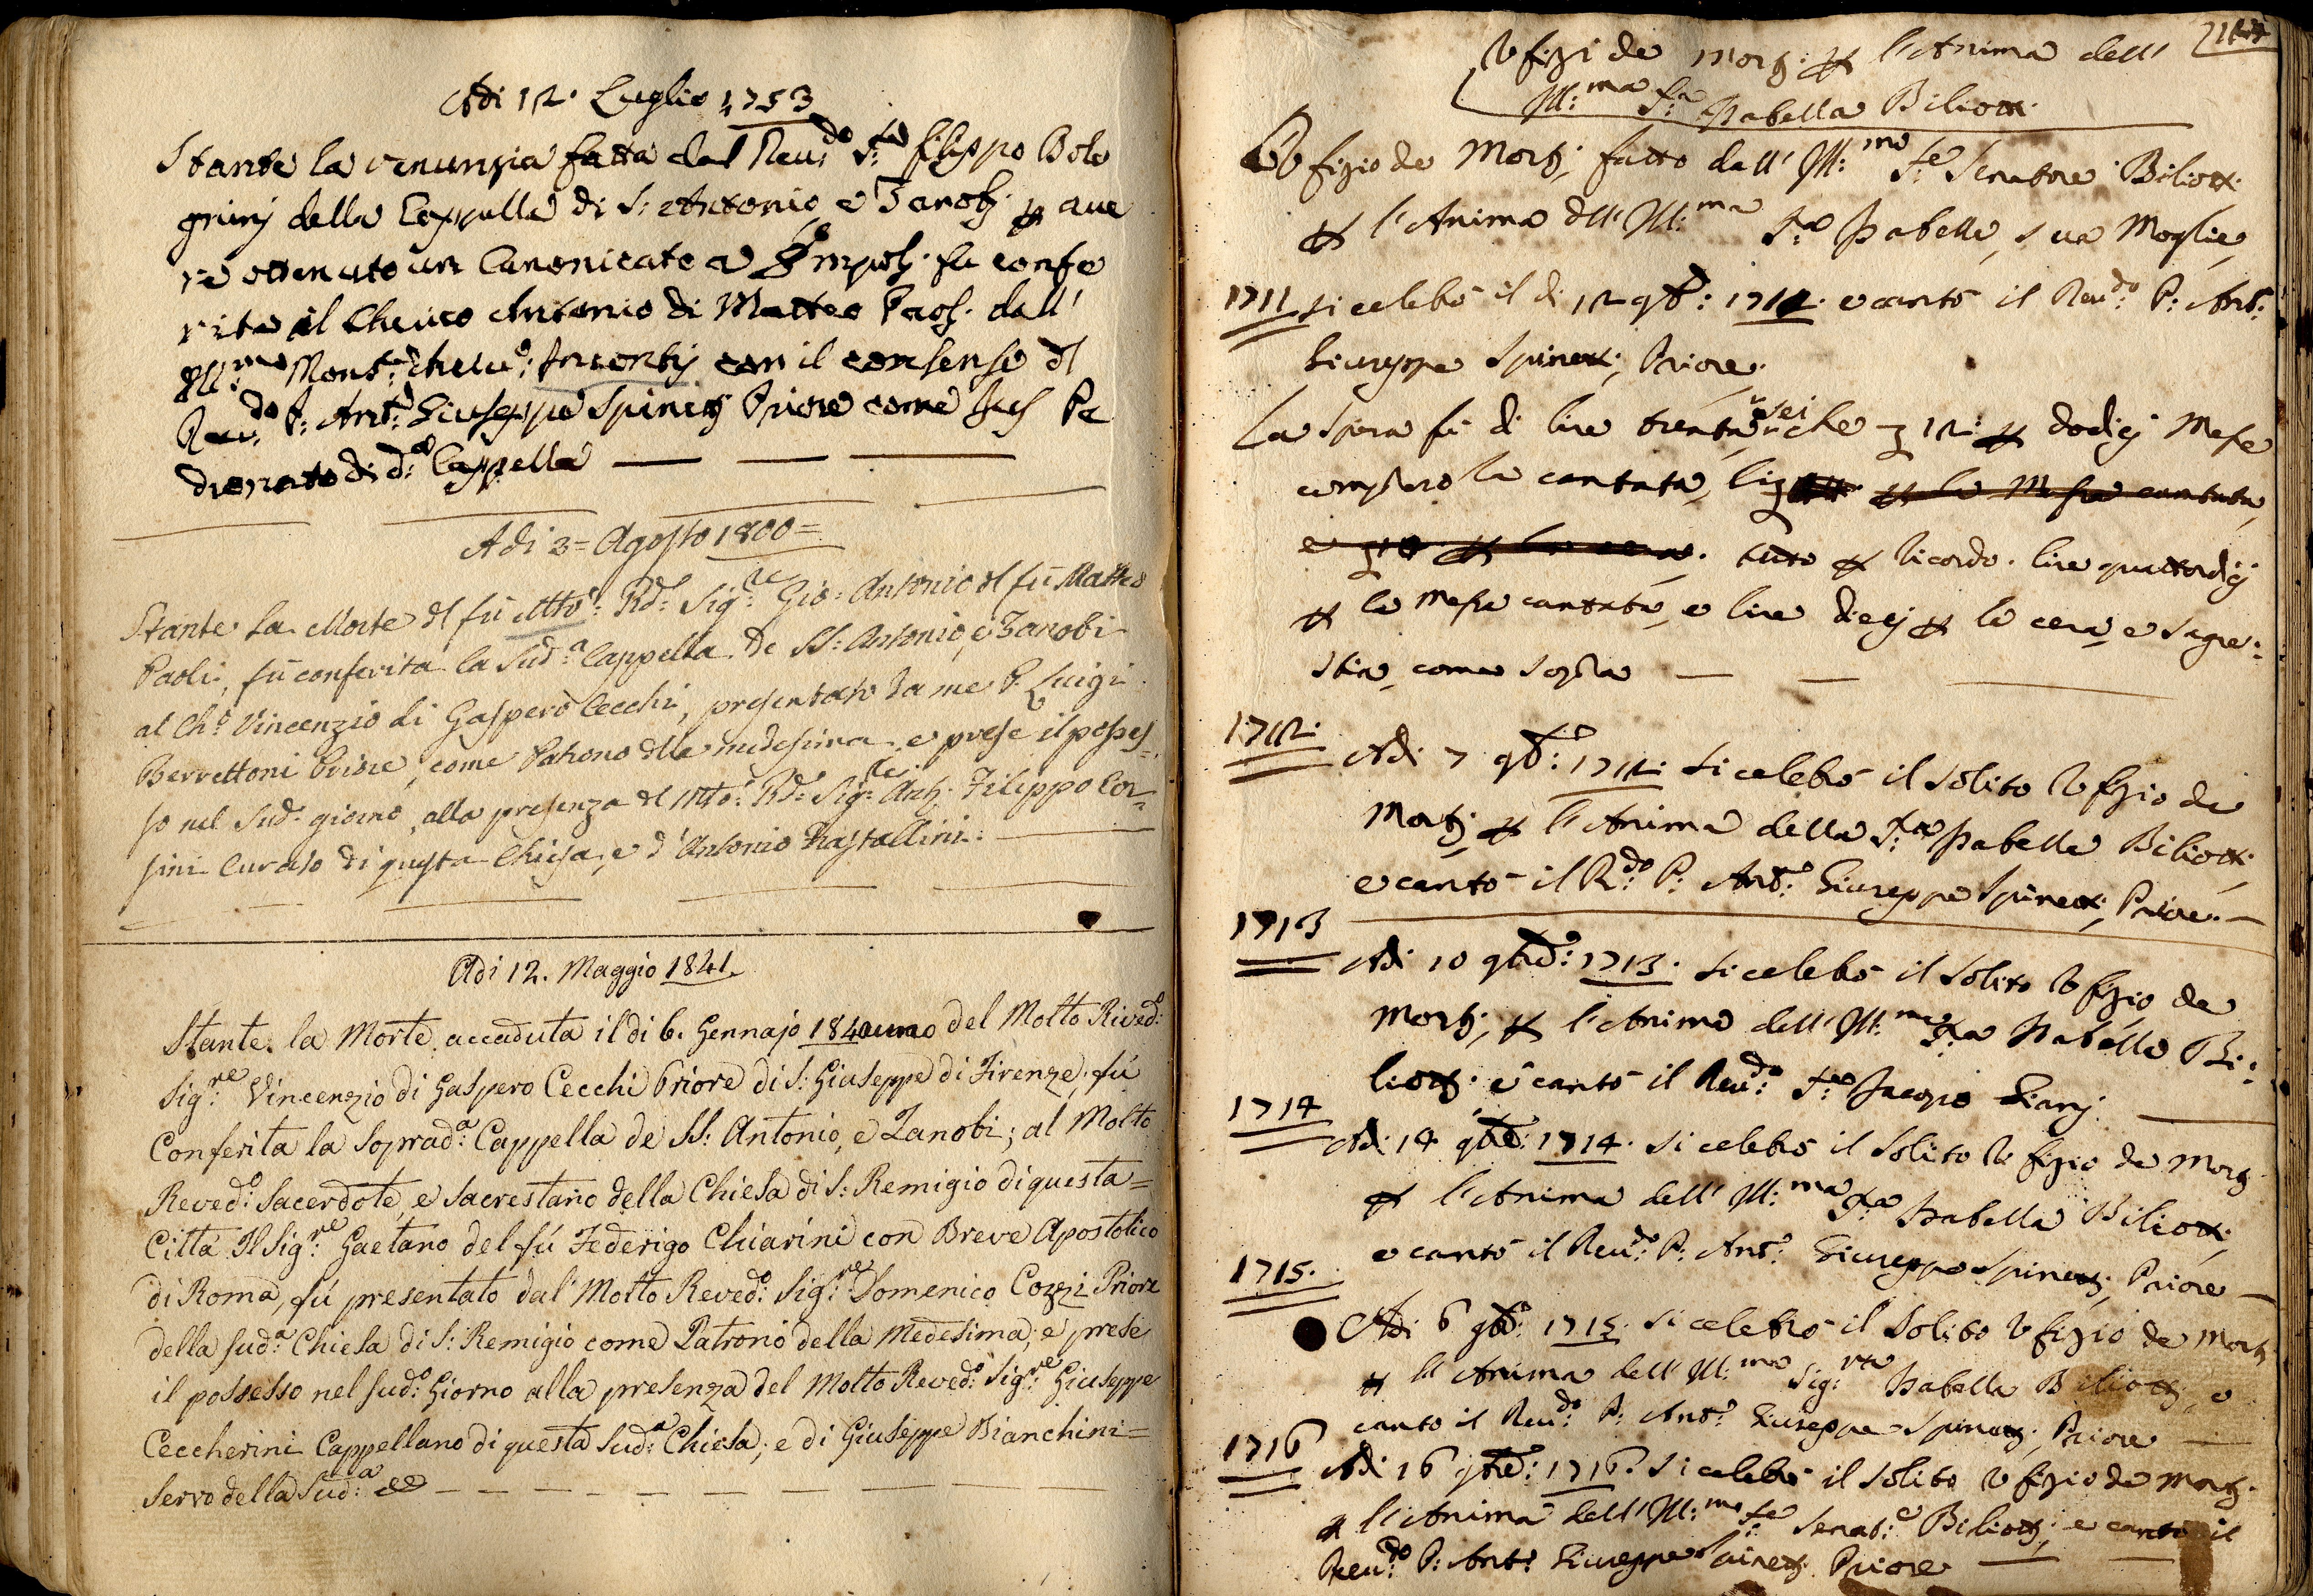 Adi 12. Luglio 1753
Stante la renunzia fatta dal Reu:do S:re Filippo Bole
grinj della Cappella di S: Antonio, e Zanobj p ave
re ottenuto un Canonicato a Empolj. fu confe
rita al Cherico Antonio di Matteo Paolj. dall'
Ill:mo Mons:re Incontrj con il consenso dl
Reu:do P: Ant:o Giuseppe Spinetj Priore come Jus Pa
dronato di d:a Cappella
Adi 3= Agosto 1800=
Stante la Morte dl fù Mto: Rd:o Sig:re Gio: Antonio dl fù Matteo
Paoli, fù conferita la Sud:a Cappella de SS: Antonio, e Zanobi
al Ch:o Vincenzio di Gaspero Cecchi, presentato da me P. Luigi
Berrettoni Priore, come Patrono della medesima e prese il posses=
so nel Sud:o giorno, alla presenza dl Mto: Rd:o Sig:re Filippo Cor=
sini Curato di questa Chiesa, e d'Antonio Frastallini.
Adi 12. Maggio 1841.
Stante la Morte accaduta il di 6. Gennajo 1840uno del Molto Rived:o
Sig:re Vincenzio di Gaspero Cecchi Priore di S: Giuseppe di Firenze, fú
Conferita la Soprad:a Cappella de SS: Antonio, e Zanobi; al Molto
Reved:o Sacerdote, e Sacrestano della Chiesa di S: Remigio di questa=
Città Il Sig:re Gaetano del fú Federigo Chiarini con Breve Apostolico
di Roma, fú presentato dal Molto Reved:o Sig:re Domenico Cozzi Priore
della sud:a Chiesa di S: Remigio come Patrono della Medesima; e prese
il possesso nel sud:o Giorno alla presenza del Molto Reved:o Sig:re Giuseppe
Ceccherini Cappellano di questa Sud:a Chiesa; e di Giuseppe Bianchini=
Servo della Sud:a
Vfizi de Mortj. p l'Anima dell'
Ill:ma S:ra Isabella Biliotti.
Vfizio de Mortj, fatto dall' Ill:mo S:re Senatore Biliotti.
p l'Anima dll' Ill:ma S:ra Isabella, sua Moglie,
1711 si celebrò il di 12 9b:e 1711. e cantò il Reu:do P: Ant:o
Giuseppe Spinetti, Priore.
La spesa fù di lire trentasei che 12: p dodicj Messe
compreso la cantata, p la Messa cantata,
e p la cera. tutto p Ricordo. lire quattordicj
p la Messa cantata, e lire diecj p la cera, e sagre:
stia, come sopra
1712. Adi 7 9b:e 1712. si celebrò il solito Vfizio de
Mortj p l'Anima della S:ra Isabella Biliotti,
e cantò il R:do P: Ant:o Giuseppe Spinetti, Priore.
1713 Adi 10 9bre: 1713. si celebrò il solito Vfizio de
Mortj, p l'Anima dell' Ill:ma S:ra Isabella Bi:
liottj. e cantò il Reu:do S:re Jacopo Gianj.
1714 Adi 14 9bre: 1714. si celebrò il solito Vfizio de Mortj
p l'Anima dell' Ill:ma S:ra Isabella Biliotti,
e cantò il Reu:do P: Ant:o Giuseppe Spinettj, Priore
1715. Adi 6 9bre: 1715. si celebrò il solito Vfizio de Mortj
p l'Anima dell' Ill:ma Sig:ra Isabella Biliottj, e
canto il Reu:do P: Ant:o Giuseppe Spinettj, Priore
1716 Adi 16 9bre: 1716. si celebrò il solito Vfizio de Mortj.
p l'Anima dell' Ill:mo S:re Senat:e Biliottj, e cantò il
Reu:do P: Ant:o Giuseppe Spinetj Priore